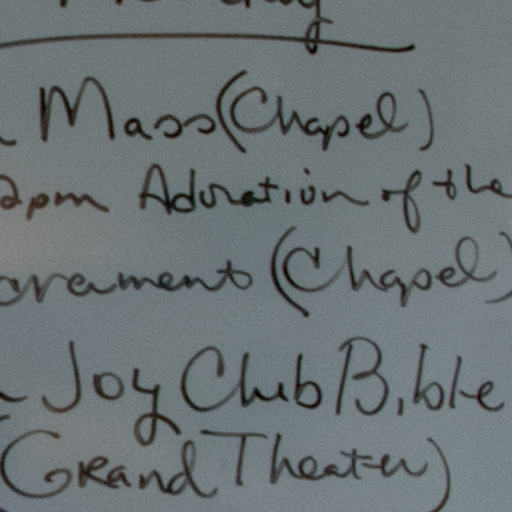 Mass (Chapel)
2pm Adoration of the
crament (Chapel)
Joy Club Bible
(Grand Theater)